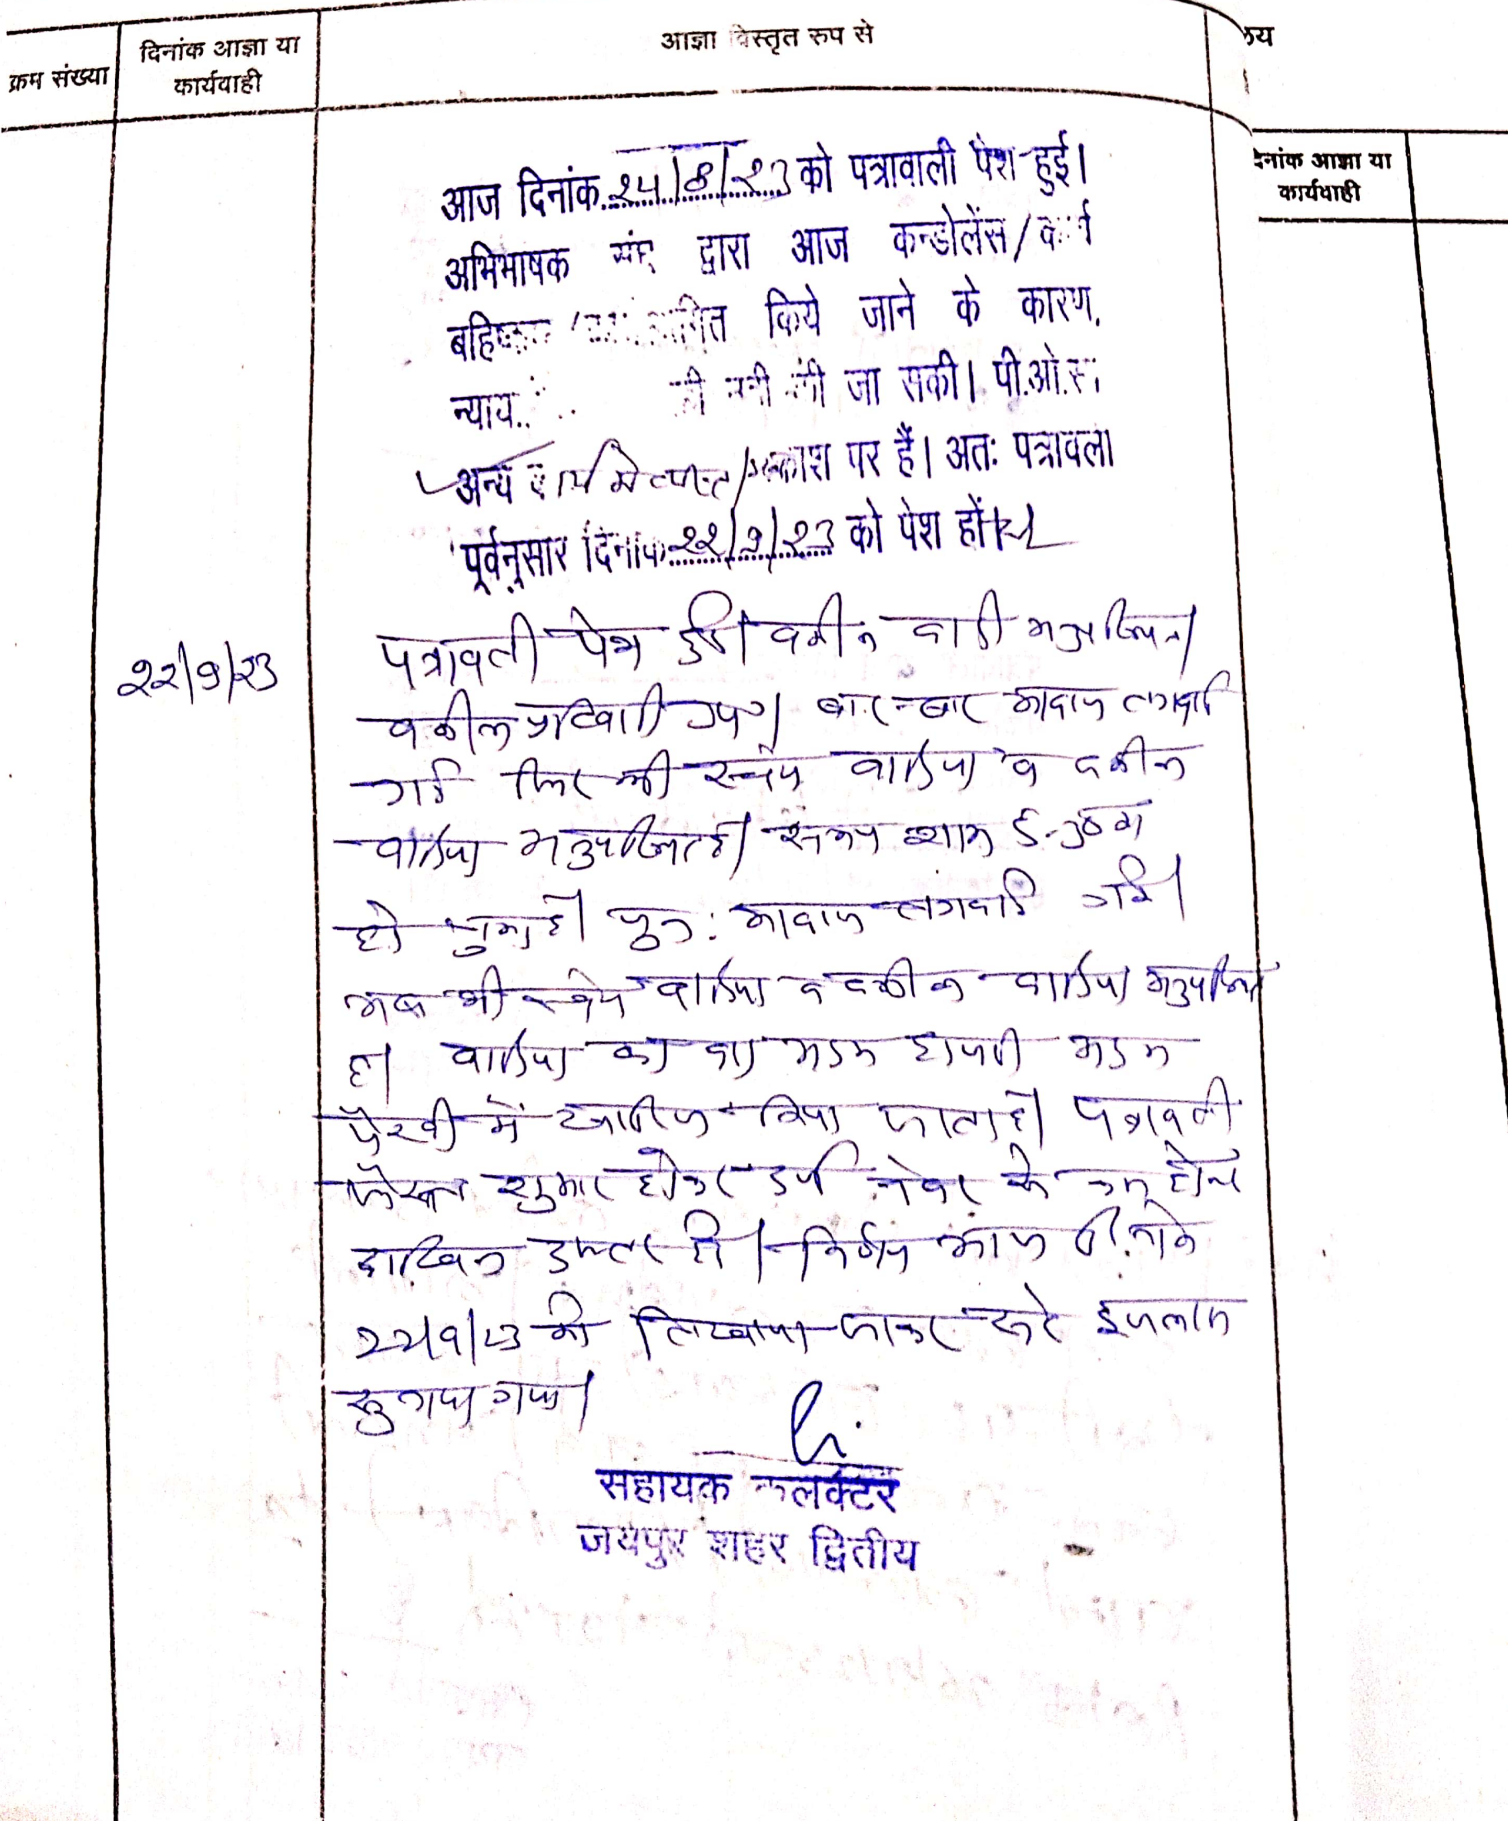 क्रम संख्या
दिनांक आज्ञा या
कार्यवाही
आज्ञा विस्तृत रुप से
दिनांक आज्ञा या
कार्यवाही
आज दिनांक 24/8/23 को पत्रावाली पेश हुई।
अभिभाषक संघ द्वारा आज कन्डोलेंस/कार्य
बहिष्कार स्थगित किये जाने के कारण
न्याय.. की जा सकी। पी.ओ.
अन्य कार्य मे व्यस्त/अवकाश पर हैं। अतः पत्रावली
पूर्वनुसार दिनांक 22/9/23 को पेश हों।
22/9/23
पत्रावली पेश हुई। वकील वादी अनुपस्थित।
वकील प्रतिवादी उप०। बार-बार आवाज लगवाई
गई फिर भी स्वंय वादिया व वकील
वादिया अनुपस्थित है। समय शाम 5-30 बजे
हो चुका है। पुन: आवाज लगवाई गई।
अब भी स्वंय वादिया व वकील वादिया अनुपस्थित
है। वादिया का वाद अदम हाजरी अदम
पैरवी में खारिज किया जाता है। पत्रावली
फैसल शुमार होकर दर्ज नंबर से कम होकर
दाखिल दफ्तर हो। निर्णय आज दिनांक
22/9/23 को लिखाया जाकर सरे इजलास
सुनाया गया।
सहायक कलक्टर
जयपुर शहर द्वितीय